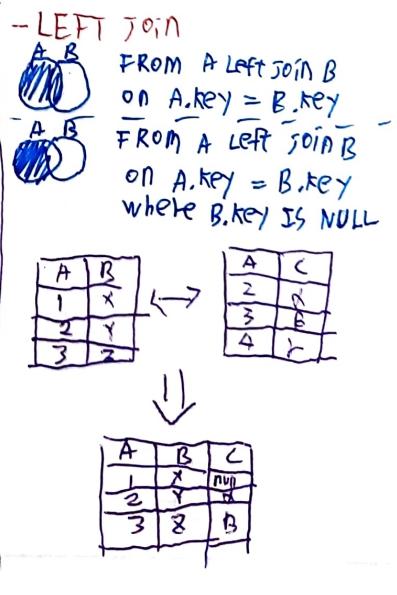 - LEFT JOIN
A B
FROM A Left Join B
on A.key = B.key
A B
FROM A Left join B
on A.key = B.key
where B.key IS NULL
A B
1 X
2 Y
3 Z
A C
2 α
3
4
A B C
1 X null
2 Y α
3 Z B